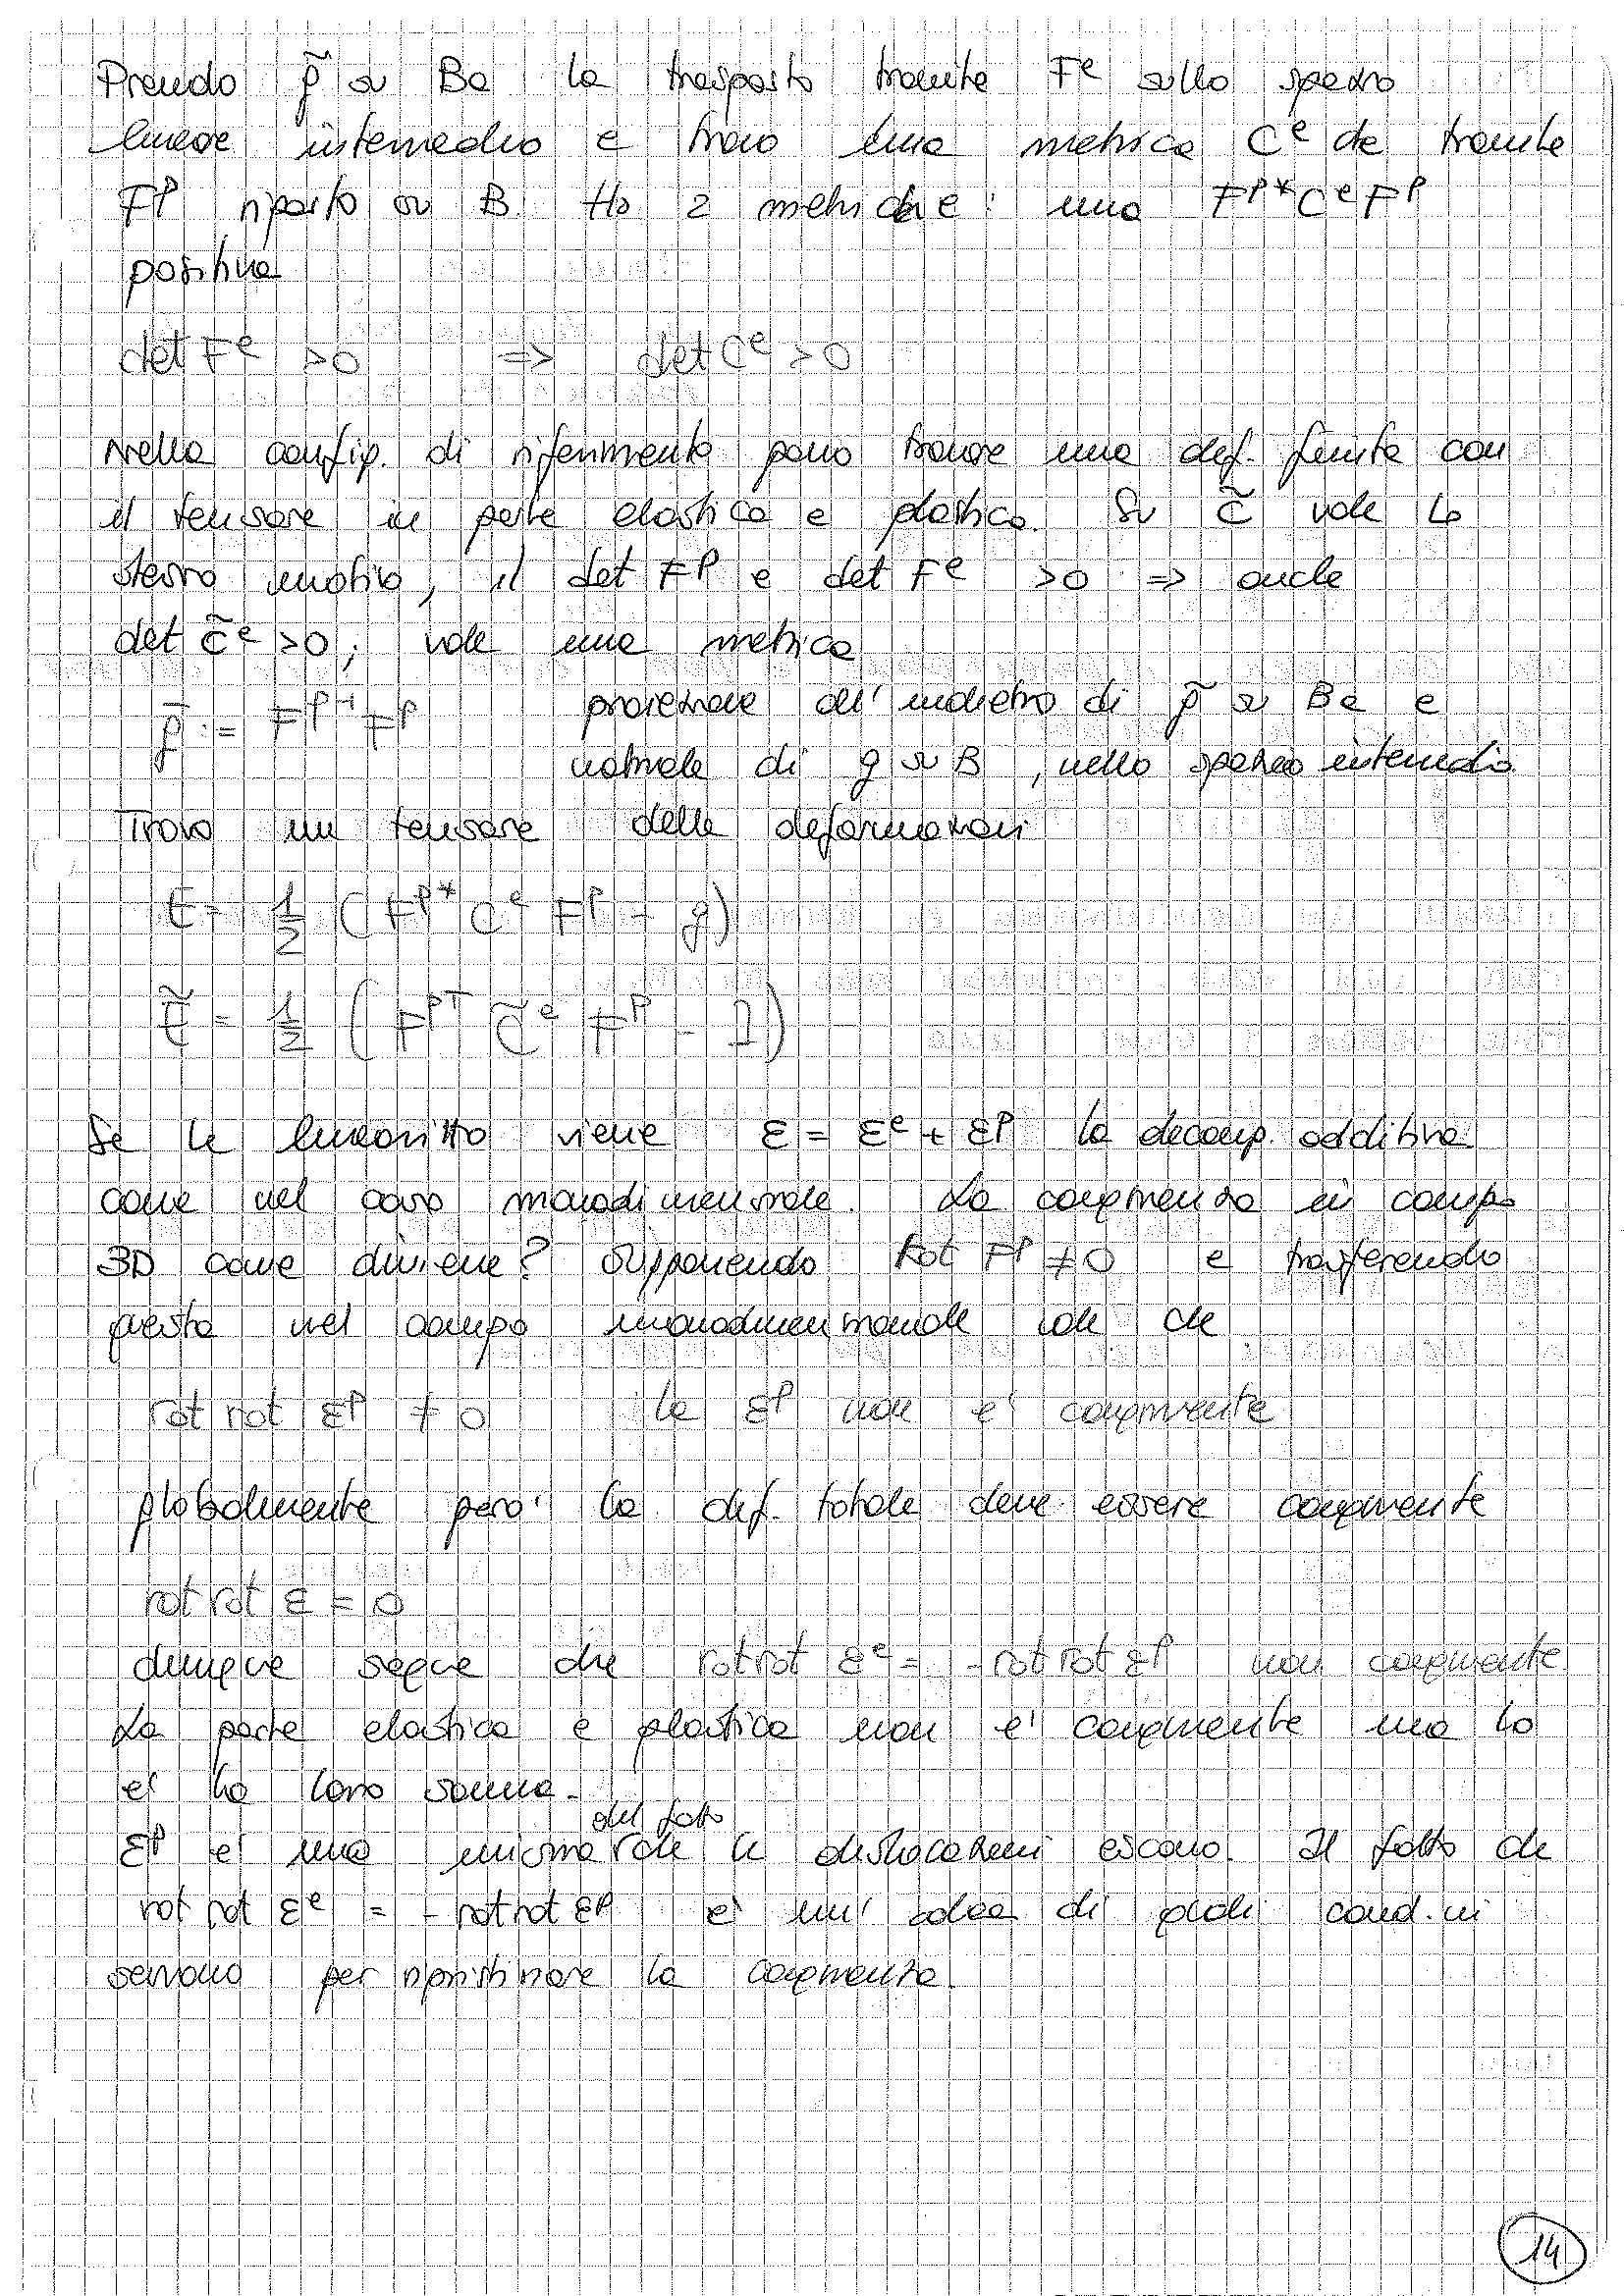 Prendo g̃ su Ba la trasporto tramite Fᵉ sullo spazio
lineare intermedio e trovo una metrica Cᵉ che tramite
Fᵖ riporto su B. Ho 2 metriche: una Fᵖ*CᵉFᵖ
positiva
det Fᵉ > 0 => det Cᵉ > 0
Nella config. di riferimento posso trovare una def. finita con
il tensore in parte elastica e plastica. Su C̃ vale lo
stesso motivo, il det Fᵖ e det Fᵉ > 0 => anche
det C̃ᵉ > 0; vale una metrica
:= Fᵖ Fᵖ proiezione all'indietro di g̃ su Ba e
naturale di g su B, nello spazio intermedio.
Trovo un tensore delle deformazioni
E = 1/2 (Fᵖ* Cᵉ Fᵖ - g)
Ẽ = 1/2 (Fᵖᵀ C̃ᵉ Fᵖ - 1)
Se la linearizzo viene ε = εᵉ + εᵖ la decomp. additiva
come nel caso monodimensionale. La congruenza in campo
3D come diviene? Supponendo Rot Fᵖ ≠ 0 e trasferendo
questo nel campo vale che
rot rot εᵖ ≠ 0 la εᵖ non e' congruente
globalmente pero' la def. totale deve essere congruente
rot rot ε = 0
dunque segue che rot rot εᵉ = - rot rot εᵖ non congruente
La parte elastica e plastica non e' congruente ma lo
e' la loro somma.
del fatto
εᵖ e' una misura che le dislocazioni escano. Il fatto che
rot rot εᵉ = - rot rot εᵖ e' un' idea di quali cond.ni
servono per ripristinare la congruenza.
14